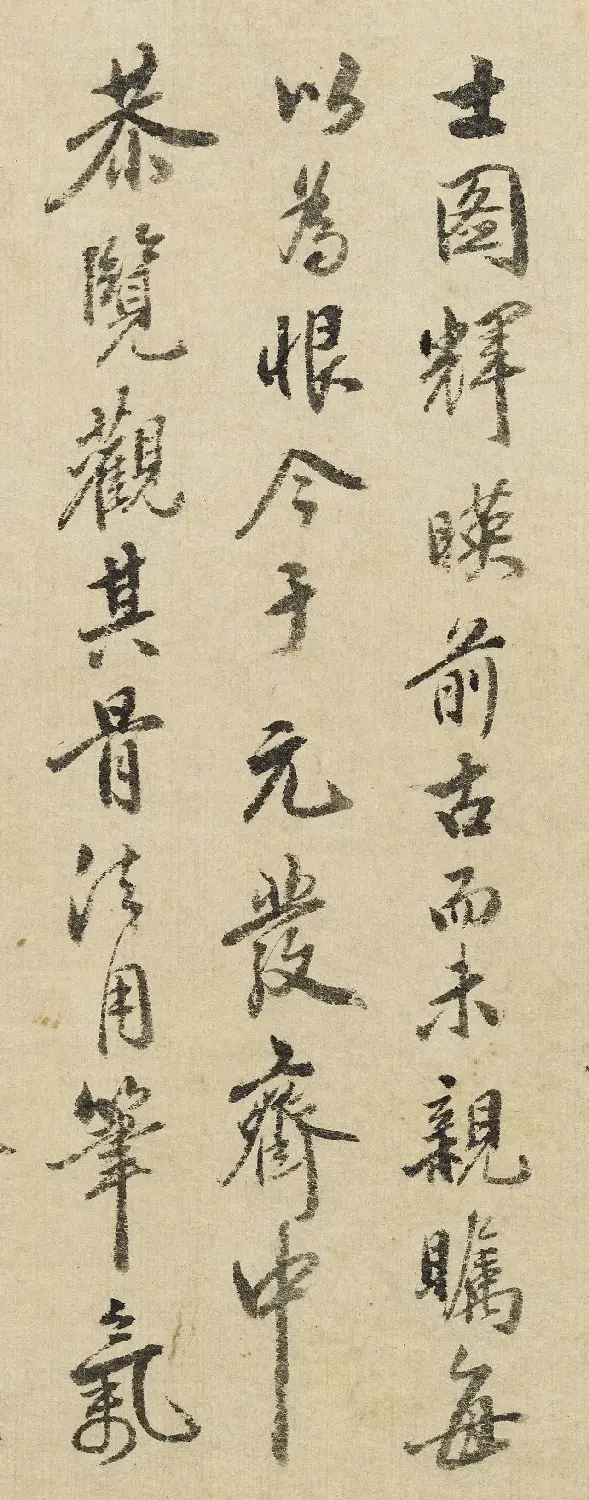 士圖輝暎前古而未親矚每
以為恨今于元發齋中
恭覽觀其骨法用筆氣